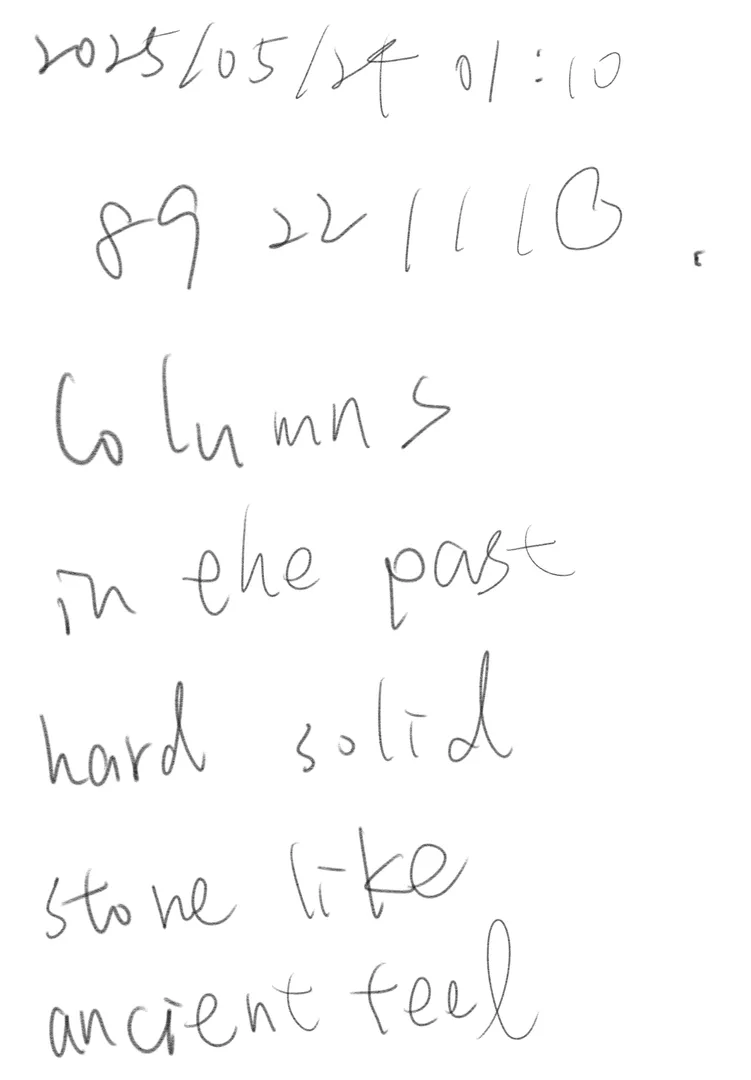 2025/05/24 01:10
89 22 1110
Columns
in the past
hard solid
stone like
ancient feel